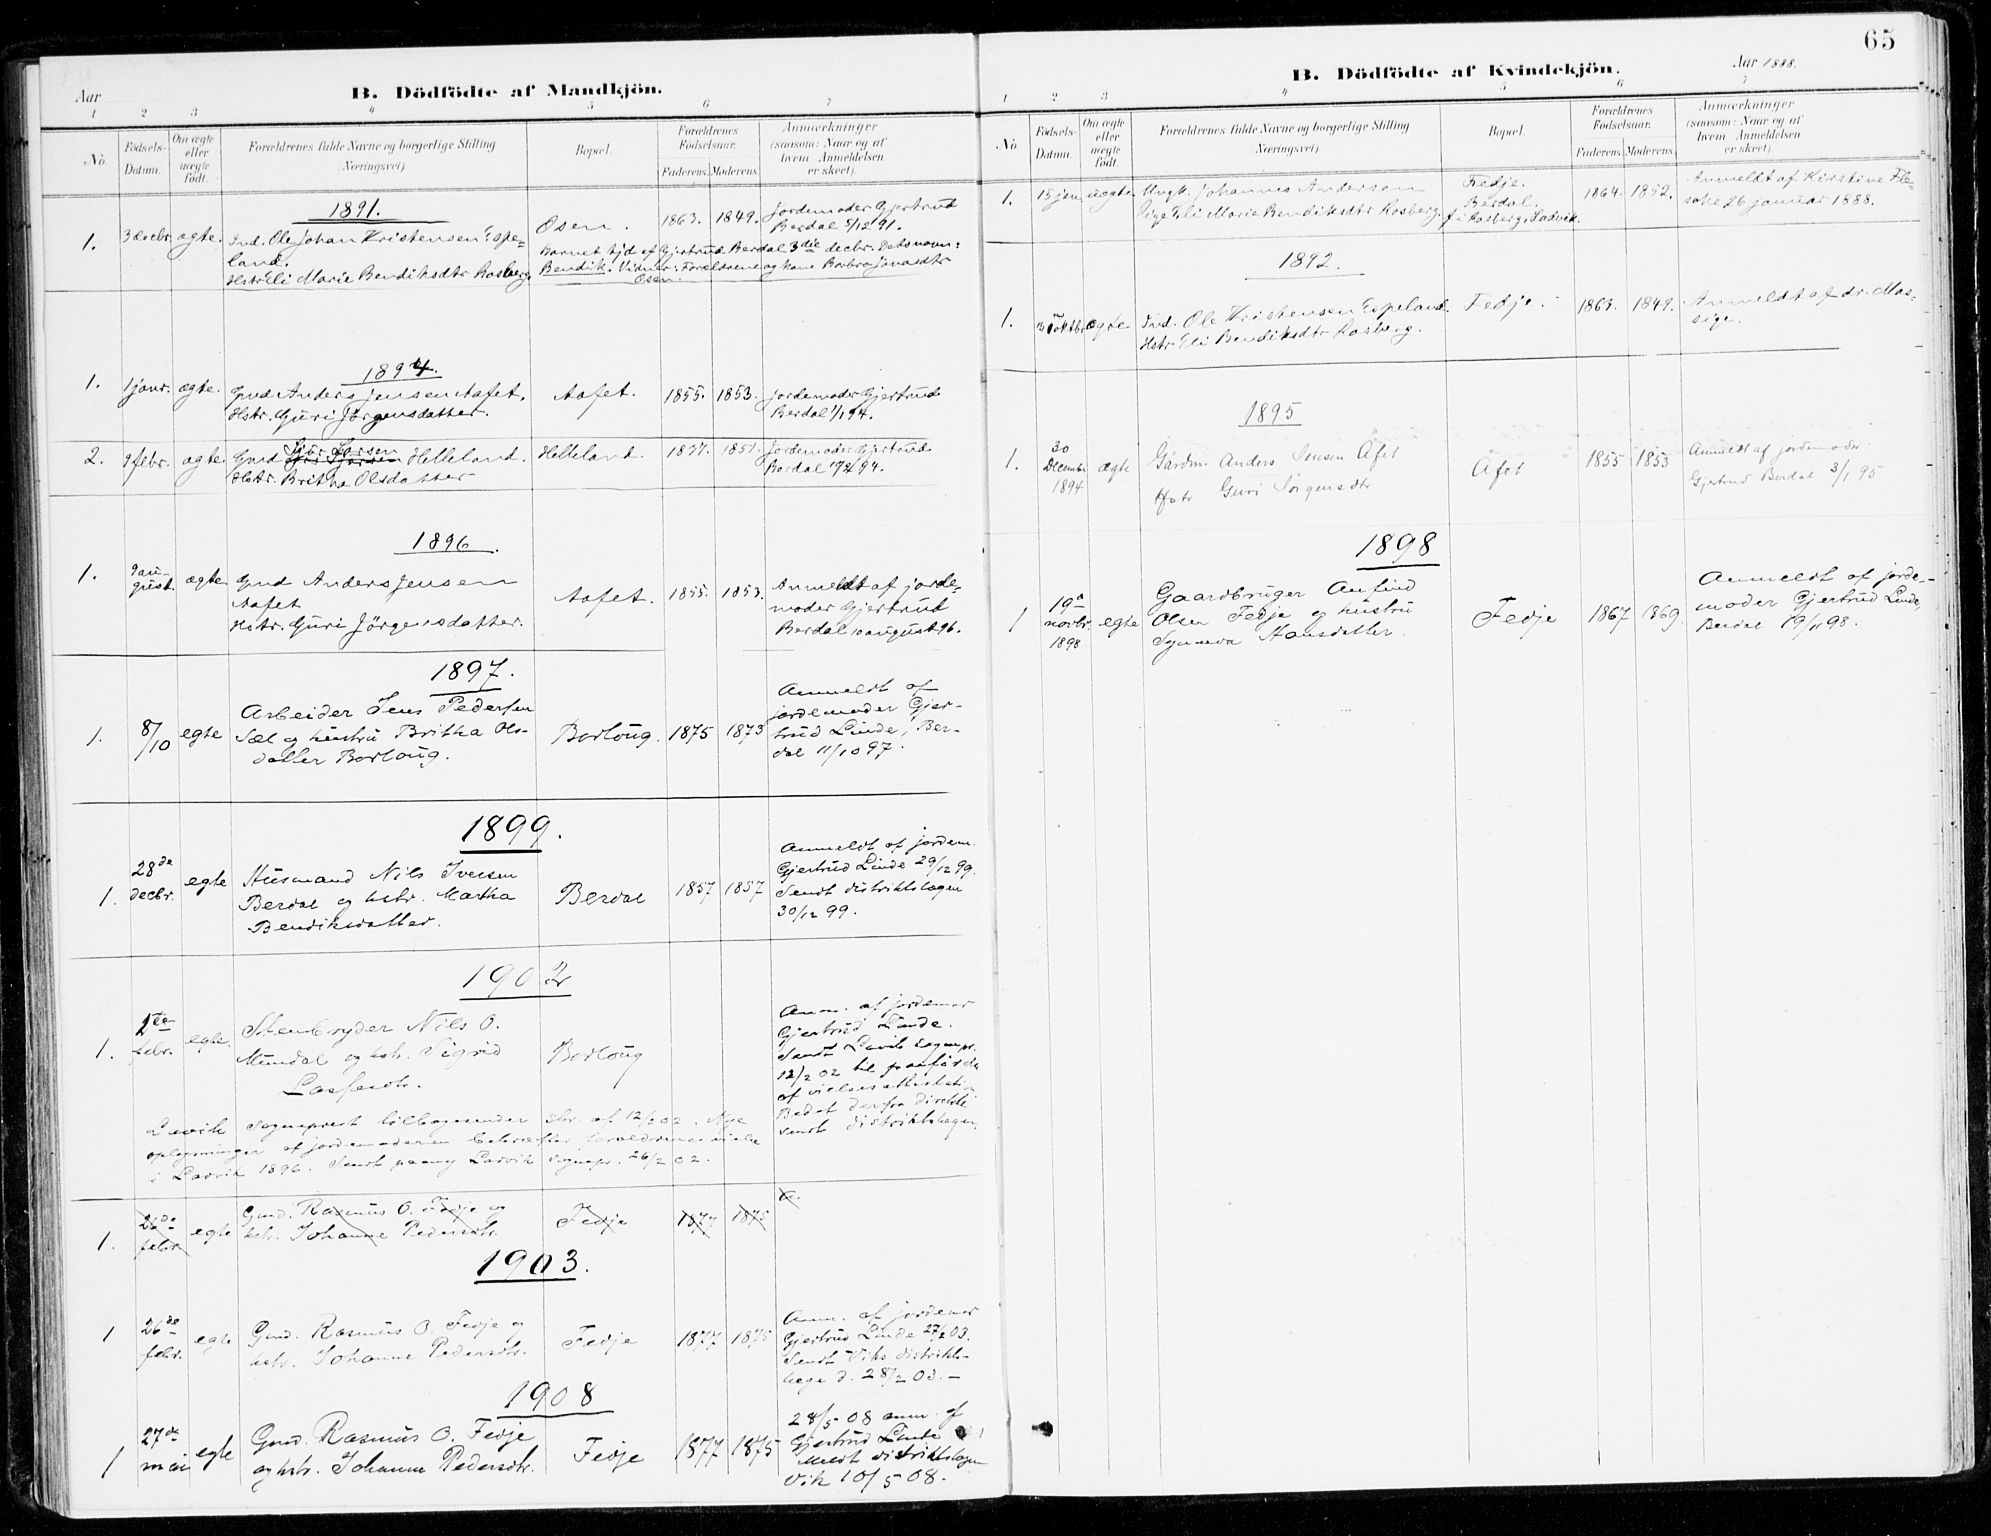 Aar
B. Dödfödte af Mandkjön.
1 2 3 4 5 6 7
No.
Födsels-
Datum.
Om ægte
eller
uægte
födt.
Forældrenes fulde Navne og borgerlige Stilling
(Næringsvei).
Bopæl.
Forældrenes
Födselsaar.
Faderens. Moderens.
Anmærkninger
(saasom: Naar og af
hvem Anmeldelsen
er skeet).
1891.
1. 3 decbr. ægte. Ind. Ole Johan Kristensen Espe-
land.
Hstr Eli Marie Bendiksdtr Rasberg.
Osen. 1863. 1849. Jordemoder Gjertrud
Berdal 5/12 91.
Barnet hjd af Gjertrud Berdal 3die decbr. Dets navn:
Bendik. Vidner: Forældrene og kone Barbra Jonasdtr
Osen.
1894.
1. 1 janr. ægte. Gmd Anders Jensen Aafet.
Hstr. Guri Jörgensdatter.
Aafet. 1855. 1853. Jordemoder Gjertrud
Berdal 1/1 94.
2. 9 febr. ægte. Gmd Larsen Helleland.
Hstr. Britha Olsdatter
Helleland. 1851. Jordemoder Gjertrud
Berdal 94.
1896.
1. 9 au-
gust. ægte Gmd Anders Jensen
Aafet
Hstr. Guri Jörgensdatter.
Aafet. 1855. 1853. Anmeldt af jorde-
moder Gjertrud
Berdal 10 august 96.
1897.
1. 8/10 egte Arbeider Jens Pedersen
Sæl og hustru Britha Ols-
datter Borloug.
Borloug. 1875 1873 Anmeldt af
jordemoder Gjer-
trud Linde, Ber-
dal 11/10 97.
1899.
1. 28de
decbr. egte Husmand Nils Iversen
Berdal og hstr. Martha
Bendiksdatter.
Berdal 1857 1857 Anmeldt af jordem.
Gjertrud Linde 29/12 99.
Sendt distriktslægen
30/12 99.
1902
1. febr. egte Stenbryder Nils O.
Mundal og hstr. Sigrid
Lassesdtr.
Borloug
Anm. af jordemor
Gjertrud Linde.
Sendt Lavik sognepr.
12/2 02 til paaförelse
af vielsesattestation
Bedet derfra direkte
sendt distriktslægen.
Lavik sogneprest tilbagesender skr. af 12/2 02. Nye
oplysninger af jordemoderen bekræfter forældrenes vielse
i Lavik 1896. Sendt paany Lavik sognepr. 26/2 02.
1. 26de
febr. egte Gmd. Rasmus O. Fedje og
hstr. Johanne Pedersdtr.
Fedje 1877 1875
1903.
1 26de
febr. egte Gmd. Rasmus O. Fedje og
hstr. Johanne Pedersdtr.
Fedje 1877 1875 Anm. af jordemor
Gjertrud Linde 27/2 03.
Sendt Viks distrikts-
læge d. 28/2 03. –
1908
1 27de
mai egte Gmd. Rasmus O. Fedje
og hstr. Johanne Pedersdtr.
Fedje 1877 1875 28/5 08 anm. af
Gjertrud Linde
Meldt distriktslægen
Vik 10/5 08.
65
B. Dödfödte af Kvindekjön.
Aar 1888.
1 2 3 4 5 6 7
No.
Födsels-
Datum.
Om ægte
eller
uægte
födt.
Forældrenes fulde Navne og borgerlige Stilling
(Næringsvei).
Bopæl.
Forældrenes
Födselsaar.
Faderens. Moderens.
Anmærkninger
(saasom: Naar og af
hvem Anmeldelsen
er skeet).
1. jan. uægte Ungk. Johannes Andersen
Pige Eli Marie Bendiksdtr Rasberg.
Fedje.
Berdal.
f. i Rasberg, Ladvik.
1864. 1852. Anmeldt af Kirstine Fle-
soke 26 januar 1888.
1892.
1. oktbr ægte Ind. Ole Kristensen Espeland.
Hstr Eli Bendiksdtr Rasberg.
Fedje. 1863. 1849. Anmeldt af dr. Mas-
sige.
1895
1. 30
Decembr
1894
ægte Gårdm. Anders Jensen Åfet
Hstr. Guri Jörgensdtr.
Åfet 1855 1853 Anmeldt af jordemoder
Gjertrud Berdal 3/1 95
1898
1 19de
novbr.
1898
egte Gaardbruger Anfind
Olsen Fedje og hustru
Synneva Hansdatter.
Fedje 1867 1869. Anmeldt af jorde-
moder Gjertrud Linde,
Berdal 19/11 98.